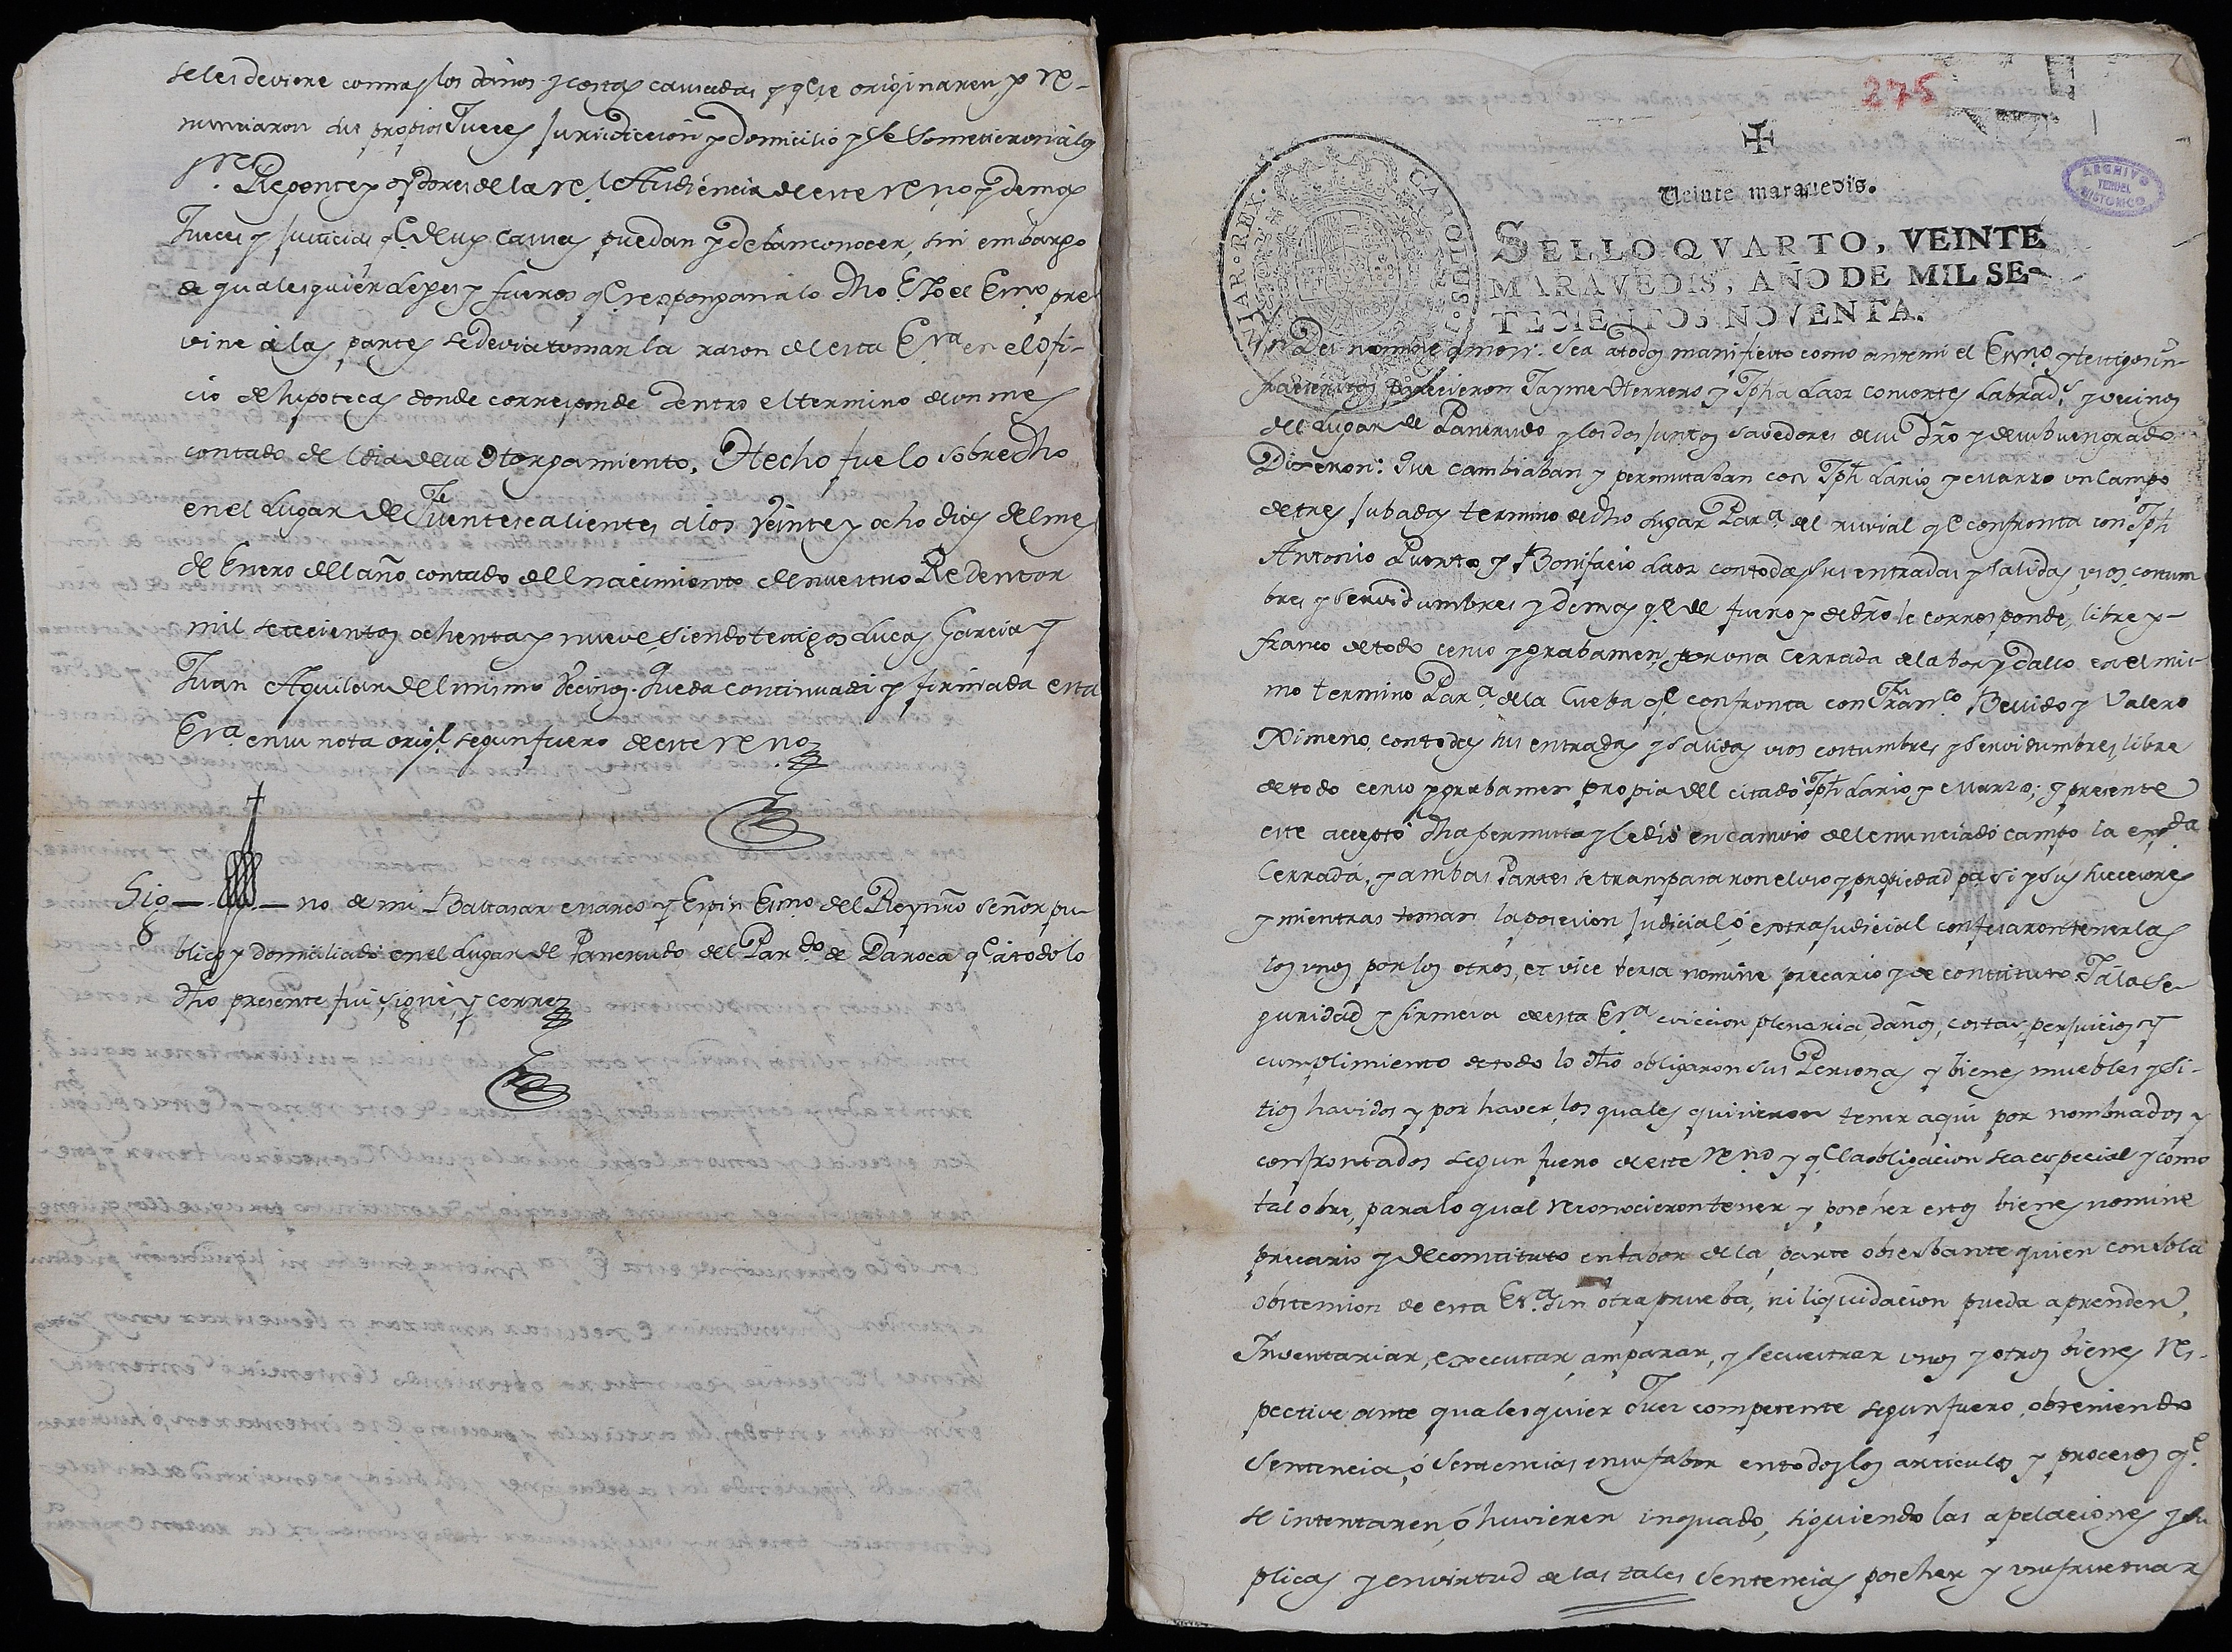 se les deviere con mas los daños y costas causadas y q.e se originaren, y re-
nunciaron sus propios Jueces jurisdiccion y domicilio y se sometieron à los
S.res Regente y oydores de la re.l Audiencia de este reyno y demas
Jueces y justicias q.e de sus causas puedan y deban conocer, sin embargo
de qualesquier leyes y fueros q.e se opongan à lo dho E Yo el Ess.no pre-
vine à las partes se devia tomar la razon de esta Es.ra en el ofi-
cio de hipotecas donde corresponde dentro el termino de un mes
contado del dia de su Otorgamiento. Hecho fue lo sobredho
en el Lugar de Fuentes calientes à los veinte y ocho dias del mes
de Enero del año contado del nacimiento de nuestro Redentor
mil setecientos ochenta y nueve, siendo testigos Lucas Garcia y
Juan Aguilar del mismo vecinos. Queda continuada y firmada esta
Es.ra en su nota orig.l segun fuero de este reyno
Sig — no de mi Baltasar Marco y Espin Es.no del Rey nr̃o señor pu-
blico y domiciliado en el Lugar de Pancrudo del Par.do de Daroca q.e à todo lo
dho presente fui, signè, y cerre
275
Veinte maravedis.
SELLO QVARTO, VEINTE
MARAVEDIS, AÑO DE MIL SE-
TECIENTOS NOVENTA.
CAROLUS HISPANIAR. REX.
ARCHIVO
TERUEL
HISTORICO
In Dei nomine amen. Sea a todos manifiesto como ante mi el Ess.no y testigos in-
fraescritos parecieron Jayme Herrero y Jpha Laor consortes Labrad.s y vecinos
del Lugar de Pancrudo y los dos juntos savedores de su dr̃o y de su buen grado
Dixeron: Que cambiaban y permutaban con Jph Lario y Marzo un Campo
de tres jubadas termino de dho Lugar Par.a del ruvial q.e confronta con Jph
Antonio Puerto y Bonifacio Laor con todas sus entradas y salidas, usos costum
bres y servidumbres y demas q.e de fuero y de dr̃o le corresponde, libre y
franco de todo censo y grabamen por una Cerrada de labor y dallo en el mis-
mo termino Par.a de la Cueba q.e confronta con Fran.co Bellido y Valero
Ximeno, con todas sus entradas y salidas usos costumbres y servidumbres, libre
de todo censo y grabamen propia del citado Jph Lario y Marzo; y presente
este acceptó dha permuta y le dió en cambio del enunciado campo la exp.da
Cerrada, y ambas Partes se transpasaron el uso y propiedad p.a si y sus succesores
y mientras toman la posesion judicial ó extrajudicial confesaron tenerlas
los unos por los otros, et vice versa nomine precario y de constituto. Y à la se-
guridad y firmeza de esta Es.ra eviccion plenaria, daños, costas, perjuicios y
cumplimiento de todo lo dho obligaron sus Personas y bienes muebles y si-
tios havidos y por haver, los quales quisieron tener aqui por nombrados y
confrontados segun fuero de este reyno y q.e la obligacion sea especial y como
tal obre, para lo qual reconocieron tener y poseher estos bienes nomine
precario y de constituto en fabor de la parte obserbante quien con sola
obstension de esta Es.ra sin otra prueba, ni liquidacion pueda aprender,
Inventariar, executar, amparar, y sequestrar unos y otros bienes res-
pective ante qualesquier Juez competente segun fuero, obteniendo
Sentencia, ó Sentencias en su fabor en todos los articulos y procesos q.e
se intentaren, ó huvieren inquado, siguiendo las apelaciones y su
plicas y en virtud de las tales Sentencias poseher y usufructuar